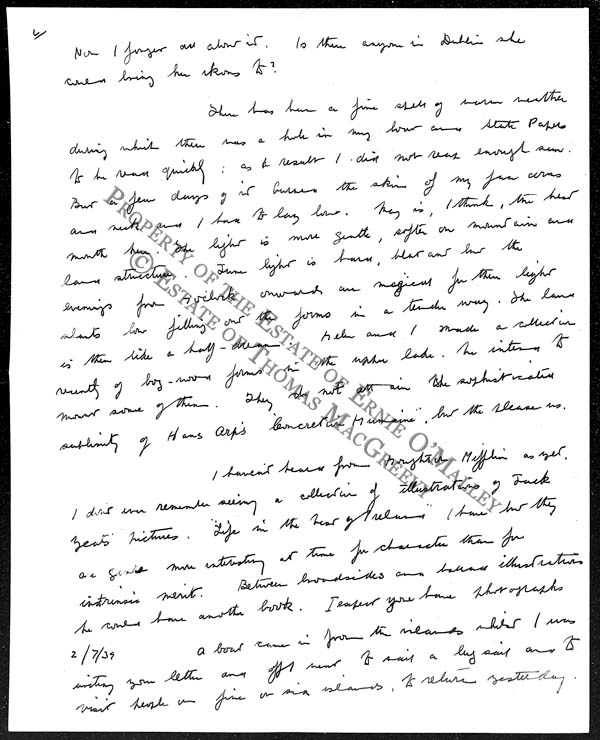 Now I forget all about it. Is there anyone in Dublin she
could bring her skons to?
There has been a fine spell of warm weather
during which there was a hole in my boat and State Papers
to be read quickly: as a result I did not reap enough sun.
But a few days of it burned the skin of my face arms
and neck and I had to lay low. May is, I think, the best
month here. The light is more gentle, softer on mountain and
land structure. June light is hard, but the
evenings from onwards are magical for then light
slants low filling out the forms in a tender way. The land
is then like a half-dream. Helen and I made a collection
recently of bog-wood forms in the upper lake. We intend to
mount some of them. They do not attain the sophisticated
sublimity of Hans Arp's "Concretion Humaine", but they please us.
I haven't heard from Houghton Mifflin as yet.
I don't ever remember seeing a collection of illustrations of Jack
Yeats' pictures. "Life in the West of Ireland" I have but they
are more interesting at time for character than for
intrinsic merit. Between broadsides and ballad illustrations
he could have another book. I expect you have photographs
2/7/39 A boat came in from the islands whilst I was
writing your letter and off I went to sail a lug sail and to
visit people on five or six islands, to return yesterday.
PROPERTY OF THE ESTATE OF ERNIE O'MALLEY
© ESTATE OF THOMAS MACGREEVY